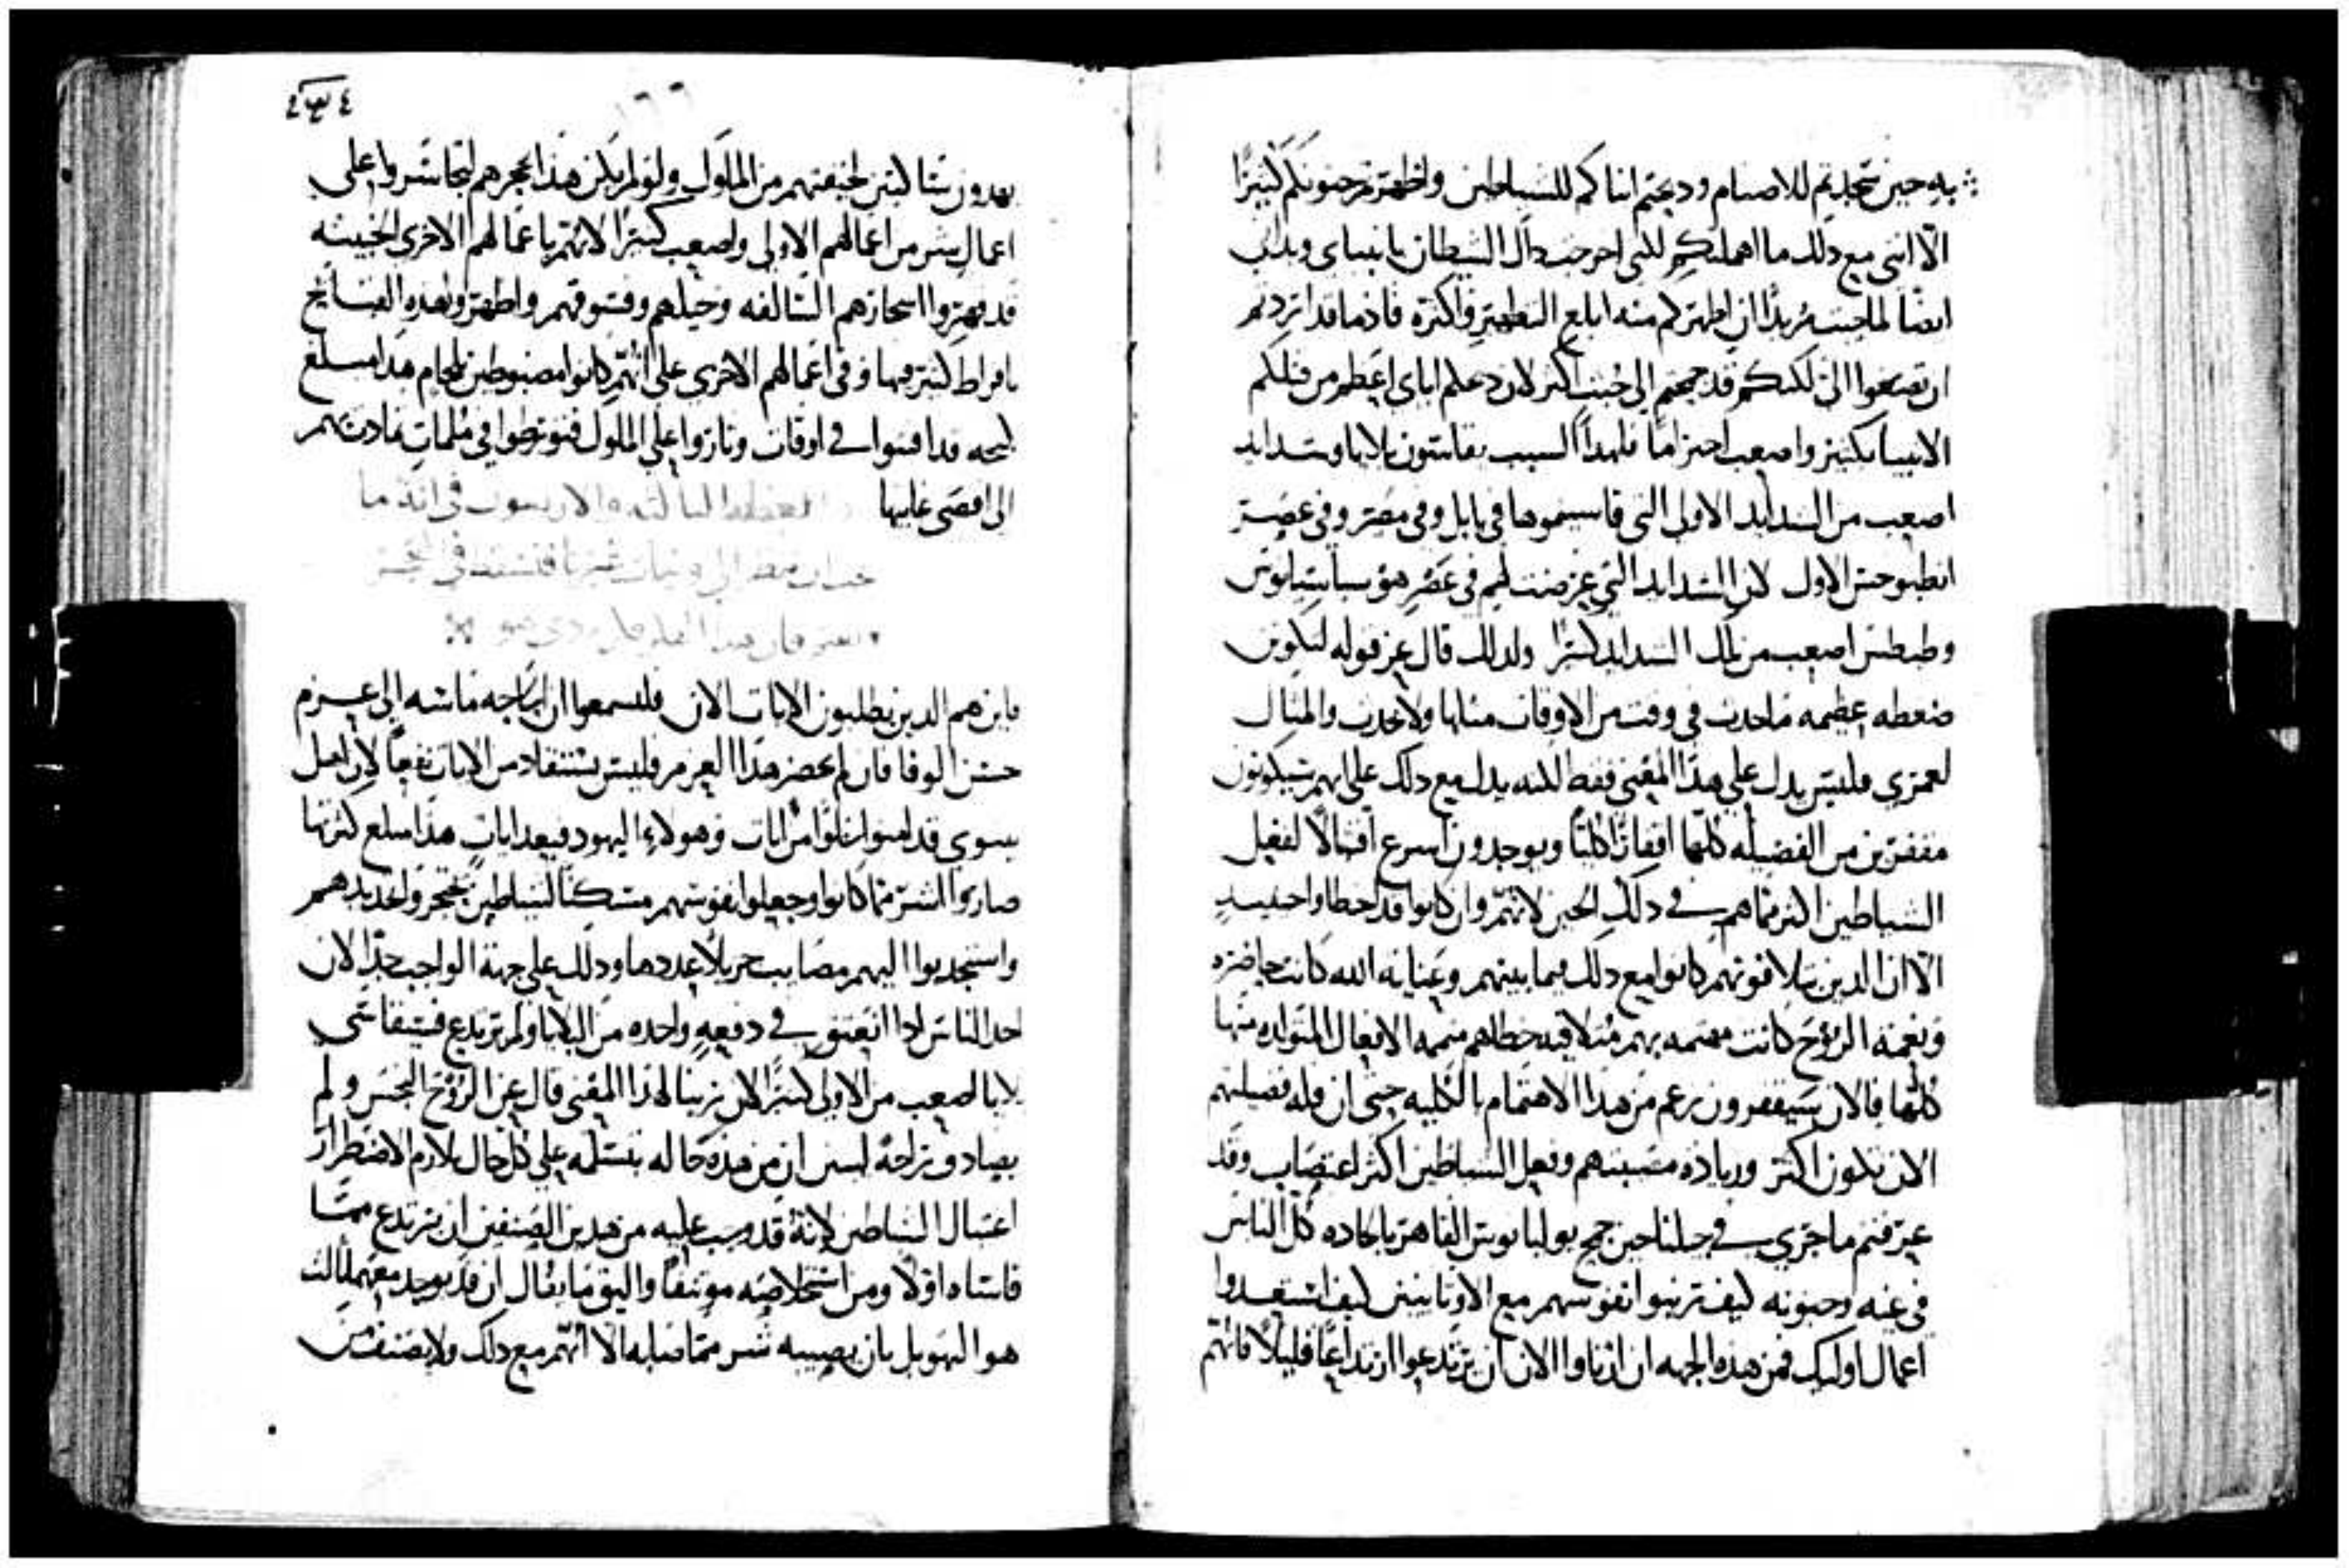 به حين سجدتم للاصنام وذبحتم ابناكم للشياطين واظهرتم جنونكم كثيرًا
الّا انني مع ذلك ما اهملتكم لكني اخرجت ذاك الشيطان بانبياي وبذاتي
ايضًا لما جيت مُريدًا ان اطهركم منه ابلغ التطهير واكثره فاذ ما قد اثردتم
ان تصغوا اليّ لكنكم قد جمحتم الى خبث اكثر لان دعلم اياي اعظم من قتلكم
الانبيا بكثير واصعب اجترامًا فلهذا السبب تقاسون بلايا وشدايد
اصعب من الشدايد الاولى التي قاسيتموها في بابل وفي مصر وفي عصر
انطيوخس الاول لان الشدايد التي عرضت لهم في عصر هو سباسيانوس
وطيطس اصعب من تلك الشدايد كثيرًا ولذلك قال عز قوله لتكونن
ضغطه عظيمه ما حدث في وقت من الاوقات مثلها ولا تحدث والمثال
لعمري فليس يدل على هذا المعنى فقط لكنه يدل مع ذلك على انهم سيكونون
مقفرين من الفضيله كلها اقفارًا كليًا ويوجدون اسرع اقبالًا لفعل
الشياطين اكثر مما هم في ذلك الحين لانهم وان كانوا قد اخطاوا حينيذٍ
الّا ان الذين تلافونهم كانوا مع ذلك فيما بينهم وعناية الله كانت حاضره
ونعمة الروح كانت مهتمه بهم متلافيه خطاهم متممه الافعال المتولده منها
كلها فالان سيقفرون زعم من هذا الاهتمام بالكليه حتى ان قلة فضيلتهم
الان تكون اكثر وزياده مصيبتهم وفعل الشياطين اكثر اغتصاب وقد
عرفتم ما جرى في جيلنا حين جمح يوليانوس القاهر بالحاده كل الناس
في غيه وجنونه كيف ترتبوا انفوسهم مع الاوثانيين كيف استعدوا
اعمال اوليك فمن هذه الجهه ان اذناوا الان ان يرتدعوا ارتداعًا قليلًا فانهم
٤٣٤
١٦٦
يهدون شاكين لخيفتهم من الملوك ولو لم يكن هذا يحجزهم لتجاسروا على
اعمال شر من اعمالهم الاولى واصعب كثيرًا لانهم باعمالهم الاخرى الخبيثه
قد قهروا اسحارهم السالفه وحيلهم وفسوقهم واظهروا هذه الفضايح
بافراط كثير فيها وفي اعمالهم الاخرى على انهم كانوا مضبوطين بلجام هذا مبلغ
 قد افتنوا في اوقات وثاروا على الملوك فتورطوا في ملمات تمادت بهم
الى اقصى غاياتها العظه الثالثه والاربعون في انه ما

فاين هم الذين يطلبون الايات الان فليسمعوا ان الحاجه ماسه الى عزم
حسن الوفا فان لم يحضر هذا العزم فليس يستفاد من الايات نفعًا لان اهل
نينوى قد امنوا خلوًا من ايات وهولاء اليهود فبعد ايات هذا مبلغ كثرتها
صاروا اشر مما كانوا وجعلوا نفوسهم مسكنًا لشياطين يتعذر واعديدهم
واستجذبوا اليهم مصايب جزيلًا عددها وذلك على جهة الواجب جدًا لان
احد الناس اذا انعتق في دفعةٍ واحده من البلايا ولم يرتدع فسيقاسي
بلايا اصعب من الاولى كثيرًا لان ربنا لهذا المعنى قال عن الروح النجس ولم
يصادف راحة ليبين ان من هذه حاله يتسلمه على كل حال بلازم الاضطرار
اغتيال الشياطين لانه قد وجب عليه من هذين الصنفين ان يرتدع مما
قاساه اولًا ومن استخلاصه موتنفًا واليق ما يقال ان قد يوجد معهما ثالث
هو التهويل بان يصيبه شر مما اصابه الّا انهم مع ذلك ولا بصنف من